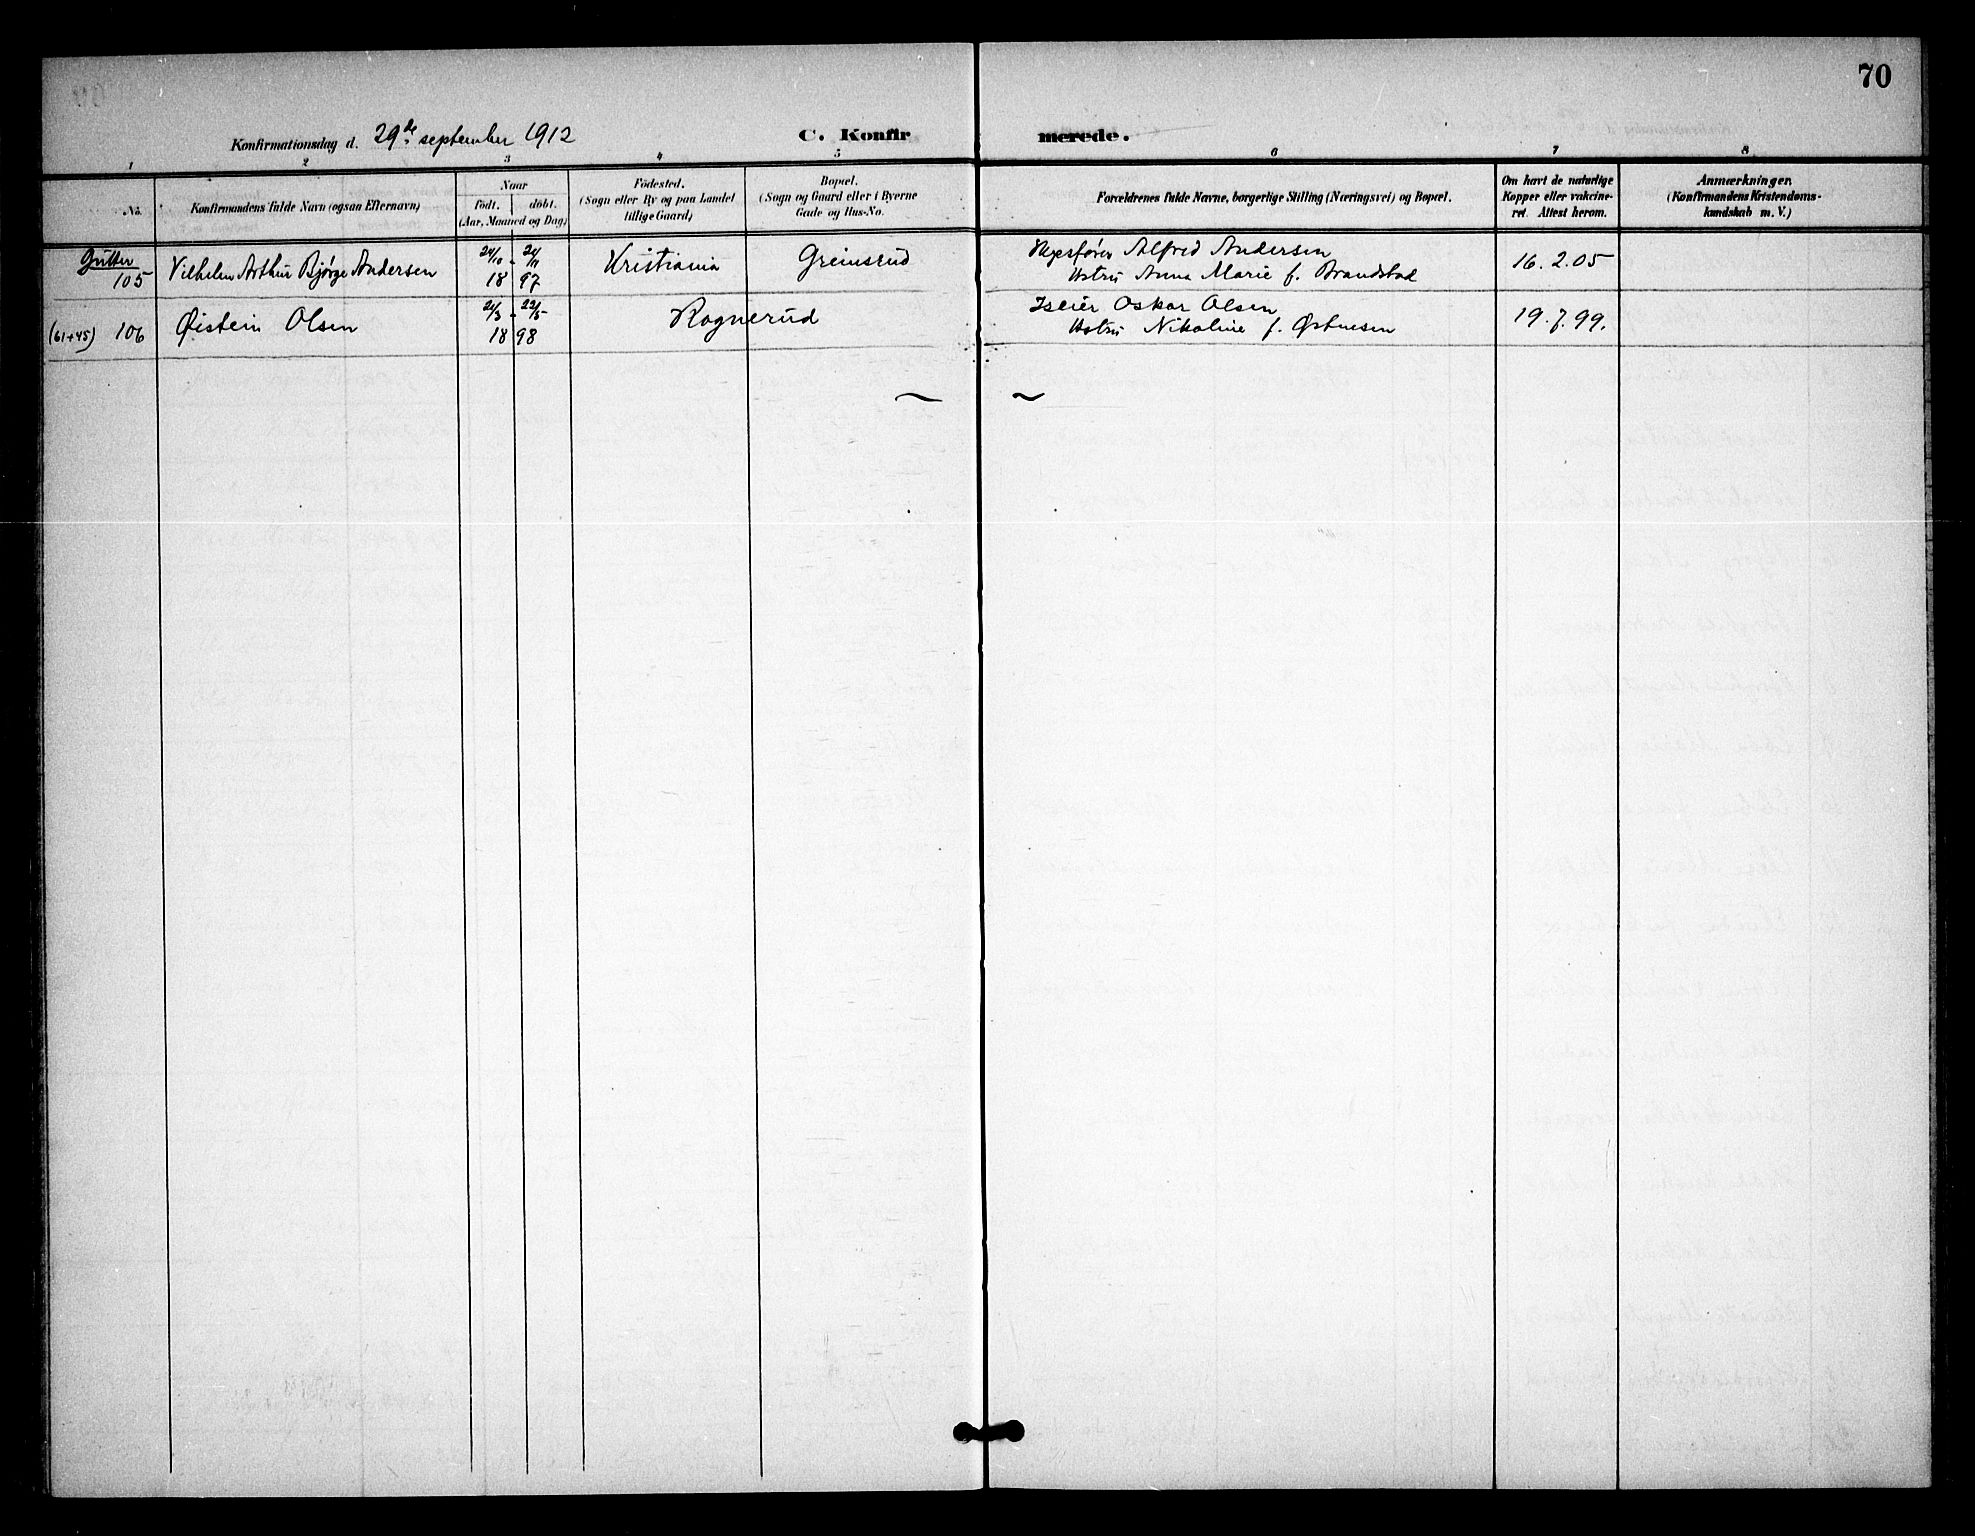 70
Konfirmationsdag d. 29de september 1912 C. Konfirmerede.
1 2 3 4 5 6 7 8
No.
Konfirmandens fulde Navn (ogsaa Efternavn)
Naar
født. døbt.
(Aar, Maaned og Dag)
Fødested.
(Sogn eller By og paa Landet
tillige Gaard)
Bopæl.
(Sogn og Gaard eller i Byerne
Gade og Hus-No.
Forældrenes fulde Navne, borgerlige Stilling (Næringsvei) og Bopæl.
Om havt de naturlige
Kopper eller vakcine-
ret. Attest herom.
Anmærkninger.
(Konfirmandens Kristendoms-
kundskab m. V.)
Gutter
105 Vilhelm Arthur Bjørge Andersen 24/10 - 21/11 1897 Kristiania Greinsrud Alfred Andersen 16.2.05
Hstru Anna Marie f. Brandstad
(61+45) 106 Øistein Olsen 21/3 - 22/5 1898 Rognerud Iseier Oskar Olsen 19.7.99.
Hstru Nikoline f. Østensen